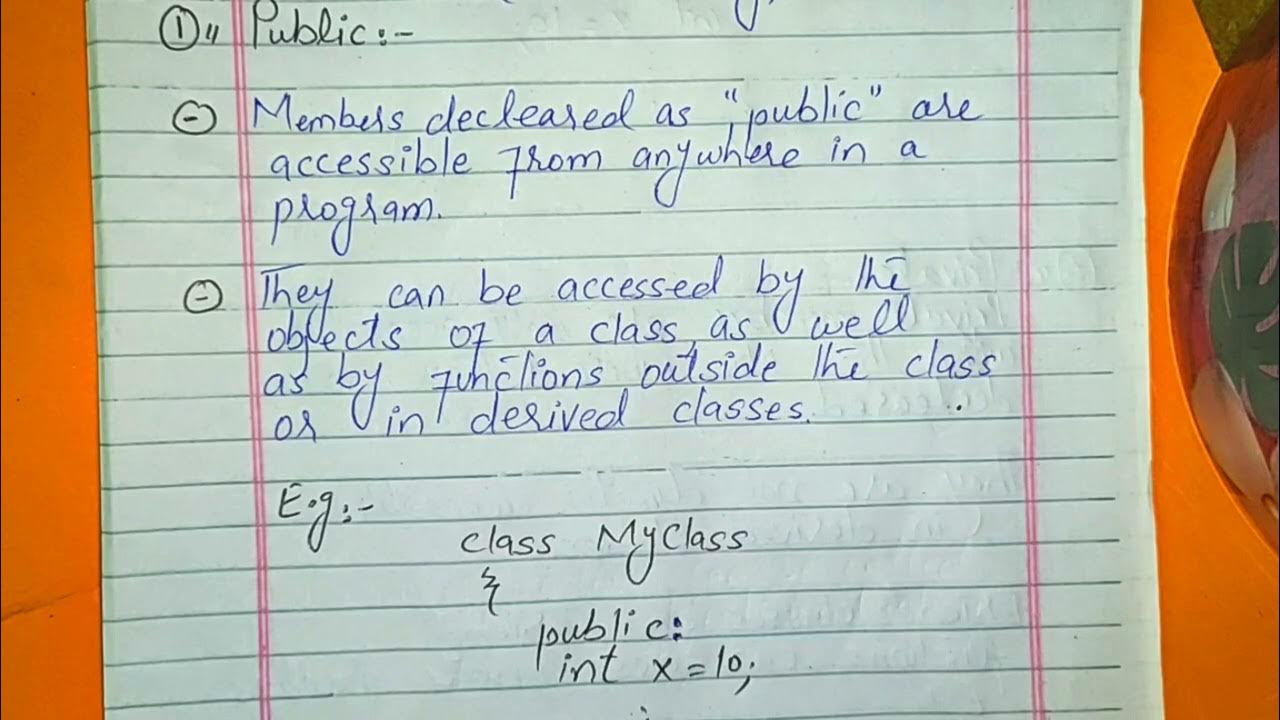 ① " Public :-
⊖ Members decleared as "public" are
accessible from anywhere in a
program.
⊖ They can be accessed by the
objects of a class, as well
as by functions outside the class
or in derived classes.
E.g :-
class MyClass
{
public:
int x = 10;